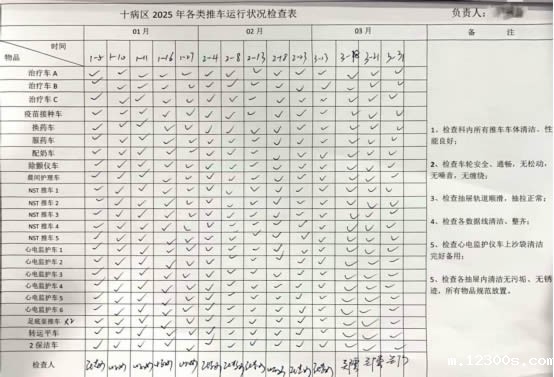 十病区 2025 年各类推车运行状况检查表
负责人：
时间 01 月 02 月 03 月 备 注
物品 1-5 1-10 1-16 1-27 2-4 2-8 2-13 2-18 2-23 3-21 3-31
治疗车 A ✓ ✓ ✓ ✓ ✓ ✓ ✓ ✓ ✓ ✓ ✓ ✓ ✓ ✓
治疗车 B ✓ ✓ ✓ ✓ ✓ ✓ ✓ ✓ ✓ ✓ ✓ ✓ ✓ ✓
治疗车 C ✓ ✓ ✓ ✓ ✓ ✓ ✓ ✓ ✓ ✓ ✓ ✓ ✓ ✓
疫苗接种车 ✓ ✓ ✓ ✓ ✓ ✓ ✓ ✓ ✓ ✓ ✓ ✓ ✓ ✓
换药车 ✓ ✓ ✓ ✓ ✓ ✓ ✓ ✓ ✓ ✓ ✓ ✓ ✓ ✓
服药车 ✓ ✓ ✓ ✓ ✓ ✓ ✓ ✓ ✓ ✓ ✓ ✓ ✓ ✓
配奶车 ✓ ✓ ✓ ✓ ✓ ✓ ✓ ✓ ✓ ✓ ✓ ✓ ✓ ✓
除颤仪车 ✓ ✓ ✓ ✓ ✓ ✓ ✓ ✓ ✓ ✓ ✓ ✓ ✓ ✓
晨间护理车 ✓ ✓ ✓ ✓ ✓ ✓ ✓ ✓ ✓ ✓ ✓ ✓ ✓ ✓
NST 推车 1 ✓ ✓ ✓ ✓ ✓ ✓ ✓ ✓ ✓ ✓ ✓ ✓ ✓ ✓
NST 推车 2 ✓ ✓ ✓ ✓ ✓ ✓ ✓ ✓ ✓ ✓ ✓ ✓ ✓ ✓
NST 推车 3 ✓ ✓ ✓ ✓ ✓ ✓ ✓ ✓ ✓ ✓ ✓ ✓ ✓ ✓
NST 推车 4 ✓ ✓ ✓ ✓ ✓ ✓ ✓ ✓ ✓ ✓ ✓ ✓ ✓ ✓
NST 推车 5 ✓ ✓ ✓ ✓ ✓ ✓ ✓ ✓ ✓ ✓ ✓ ✓ ✓ ✓
心电监护车 1 ✓ ✓ ✓ ✓ ✓ ✓ ✓ ✓ ✓ ✓ ✓ ✓ ✓ ✓
心电监护车 2 ✓ ✓ ✓ ✓ ✓ ✓ ✓ ✓ ✓ ✓ ✓ ✓ ✓ ✓
心电监护车 3 ✓ ✓ ✓ ✓ ✓ ✓ ✓ ✓ ✓ ✓ ✓ ✓ ✓ ✓
心电监护车 4 ✓ ✓ ✓ ✓ ✓ ✓ ✓ ✓ ✓ ✓ ✓ ✓ ✓ ✓
心电监护车 5 ✓ ✓ ✓ ✓ ✓ ✓ ✓ ✓ ✓ ✓ ✓ ✓ ✓ ✓
心电监护车 6 ✓ ✓ ✓ ✓ ✓ ✓ ✓ ✓ ✓ ✓ ✓ ✓ ✓ ✓
足底采推车 x2 ✓ ✓ ✓ ✓ ✓ ✓ ✓ ✓ ✓ ✓ ✓ ✓ ✓ ✓
转运平车 ✓ ✓ ✓ ✓ ✓ ✓ ✓ ✓ ✓ ✓ ✓ ✓ ✓ ✓
2 保洁车 ✓ ✓ ✓ ✓ ✓ ✓ ✓ ✓ ✓ ✓ ✓ ✓ ✓ ✓
检查人
1、检查科内所有推车车体清洁、性
能良好；
2、检查车轮安全、通畅，无松动，
无噪音，无缠绕；
3、检查抽屉轨道顺滑，抽拉正常；
4、检查各数据线清洁、整齐；
5、检查心电监护仪车上沙袋清洁
完好备用；
5、检查各抽屉内清洁无污垢、无锈
迹，所有物品规范放置。
m.12300s.com